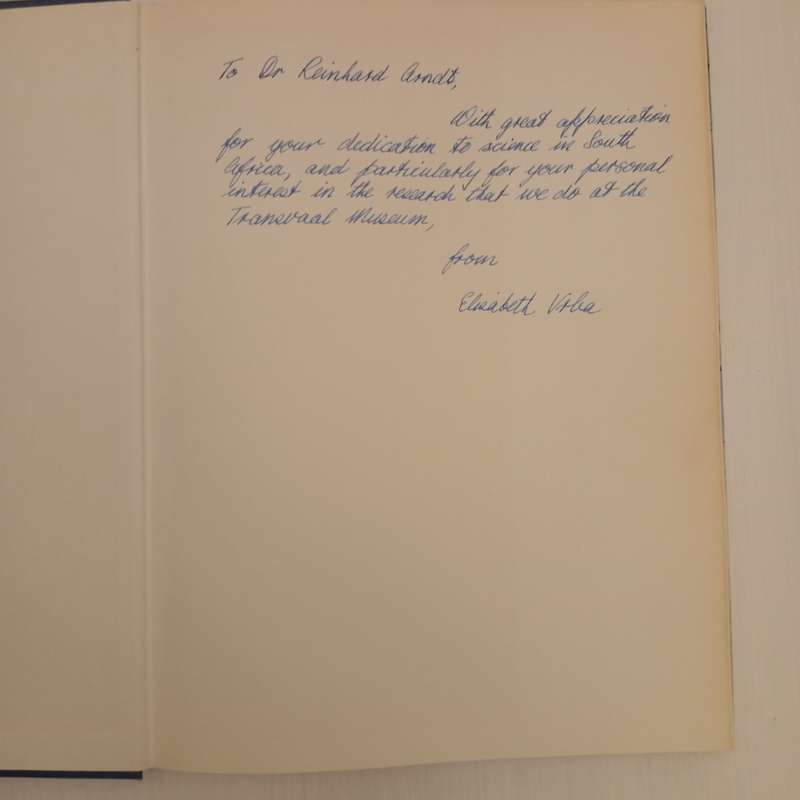 To Dr Reinhard Arndt,
With great appreciation
for your dedication to science in South
Africa, and particularly for your personal
interest in the research that we do at the
Transvaal Museum,
from
Elisabeth Vrba